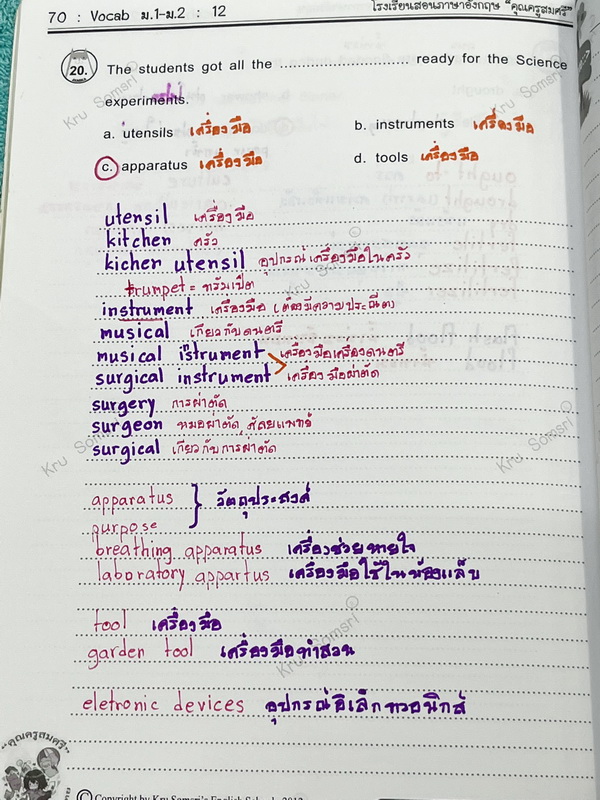 70 : Vocab ม.1-ม.2 : 12 โรงเรียนสอนภาษาอังกฤษ "คุณครูสมศรี"
20. The students got all the .................................. ready for the Science
experiments.
a. utensils เครื่องมือ b. instruments เครื่องมือ
c. apparatus เครื่องมือ d. tools เครื่องมือ
utensil เครื่องมือ
kitchen ครัว
kicher utensil อุปกรณ์เครื่องมือในครัว
trumpet = ทรัมเป็ต
instrument เครื่องมือ (ต้องมีความประณีต)
musical เกี่ยวกับดนตรี
musical instrument เครื่องมือเครื่องดนตรี
surgical instrument เครื่องมือผ่าตัด
surgery การผ่าตัด
surgeon หมอผ่าตัด, ศัลยแพทย์
surgical เกี่ยวกับการผ่าตัด
apparatus } วัตถุประสงค์
purpose
breathing apparatus เครื่องช่วยหายใจ
laboratory appartus เครื่องมือใช้ในห้องแล็บ
tool เครื่องมือ
garden tool เครื่องมือทำสวน
eletronic devices อุปกรณ์อิเล็กทรอนิกส์
"คุณครูสมศรี"
© Copyright by Kru Somsri's English School
Kru Somsri
Kru Somsri
Kru Somsri
Kru Somsri
Kru Somsri
Kru Somsri